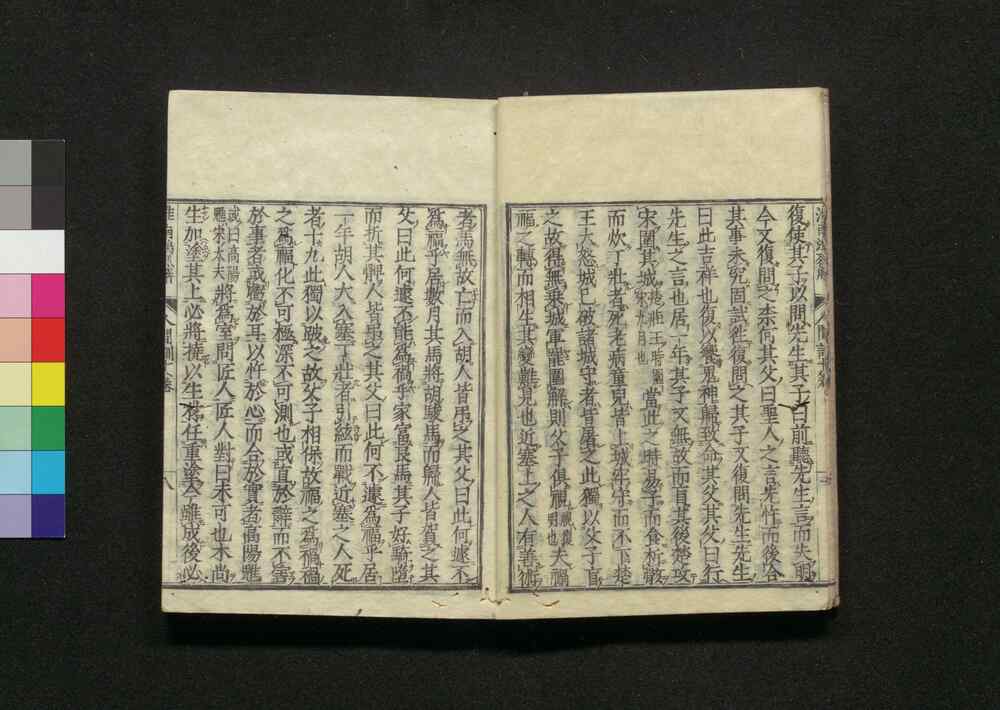 復使其子以問先生其子曰前聽先生言而失明
今又復問之柰何其父曰聖人之言先忤而後合
其事未究固試往復問之其子又復問先生先生
曰此吉祥也復以饗鬼神歸致命其父其父曰行
先生之言也居一年其子又無故而盲其後楚攻
宋圍其城楚莊王時圍宋九月也當此之時易子而食析骸
而炊丁壯者死老病童兒皆上城牢守而不下楚
王大怒城已破諸城守者皆屠之此獨以父子盲
之故得無乗城軍罷圍解則父子俱視夫禍
福之轉而相生其變難見也近塞上之人有善術
者馬無故亡而入胡人皆弔之其父曰此何遽不
爲福乎居數月其馬將胡駿馬而歸人皆賀之其
父曰此何遽不能爲禍乎家富良馬其子好騎墮
而折其髀人皆弔之其父曰此何不遽爲福乎居
一年胡人大入塞丁壯者引絃而戰近塞之人死
者十九此獨以跛之故父子相保故福之爲禍禍
之爲福化不可極深不可測也或直於辭而不害
於事者或虧於耳以忤於心而合於實者高陽魋
或曰高陽魋宋大夫將爲室問匠人匠人對曰未可也木尚
生加塗其上必將撓以生材任重塗今雖成後必